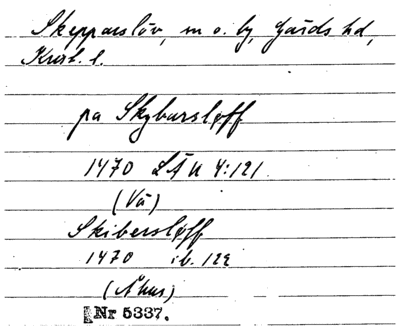 Skepparslöv, sn o. by, Gärds hd,
Krist. l.
pa Skybursløff
1470 LÄU 4:121
(Vä)
Skibersløff
1470 ib. 122
(Åhus)
Nr 5337.